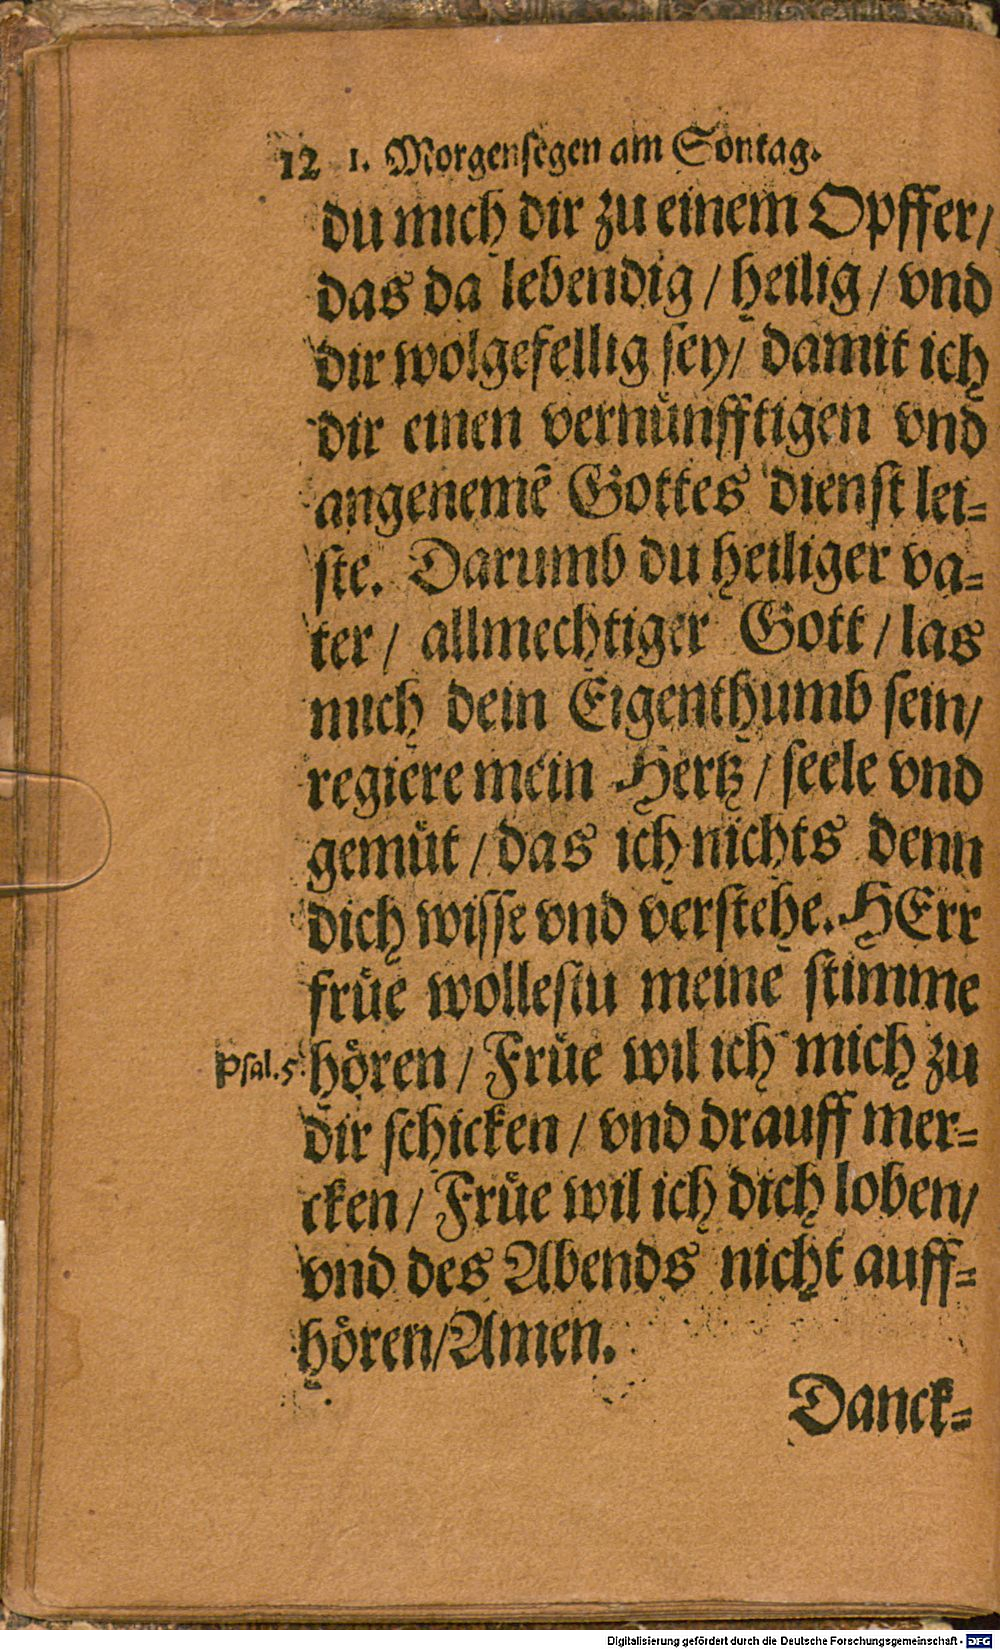 12 1. Morgensegen am Sontag.
du mich dir zu einem Opffer/
das da lebendig / heilig / vnd
dir wolgefellig sey/ damit ich
dir einen vernuͤnfftigen vnd
angenemē Gottes dienst lei=
ste. Darumb du heiliger va=
ter / allmechtiger Gott / las
mich dein Eigenthumb sein/
regiere mein Hertz / seele vnd
gemuͤt / das ich nichts denn
dich wisse vnd verstehe. HErr
fruͤe wollestu meine stimme
Psal. 5. hoͤren / Fruͤe wil ich mich zu
dir schicken / vnd drauff mer=
cken / Fruͤe wil ich dich loben/
vnd des Abends nicht auff=
hoͤren/Amen.
Danck=
Digitalisierung gefördert durch die Deutsche Forschungsgemeinschaft - DFG